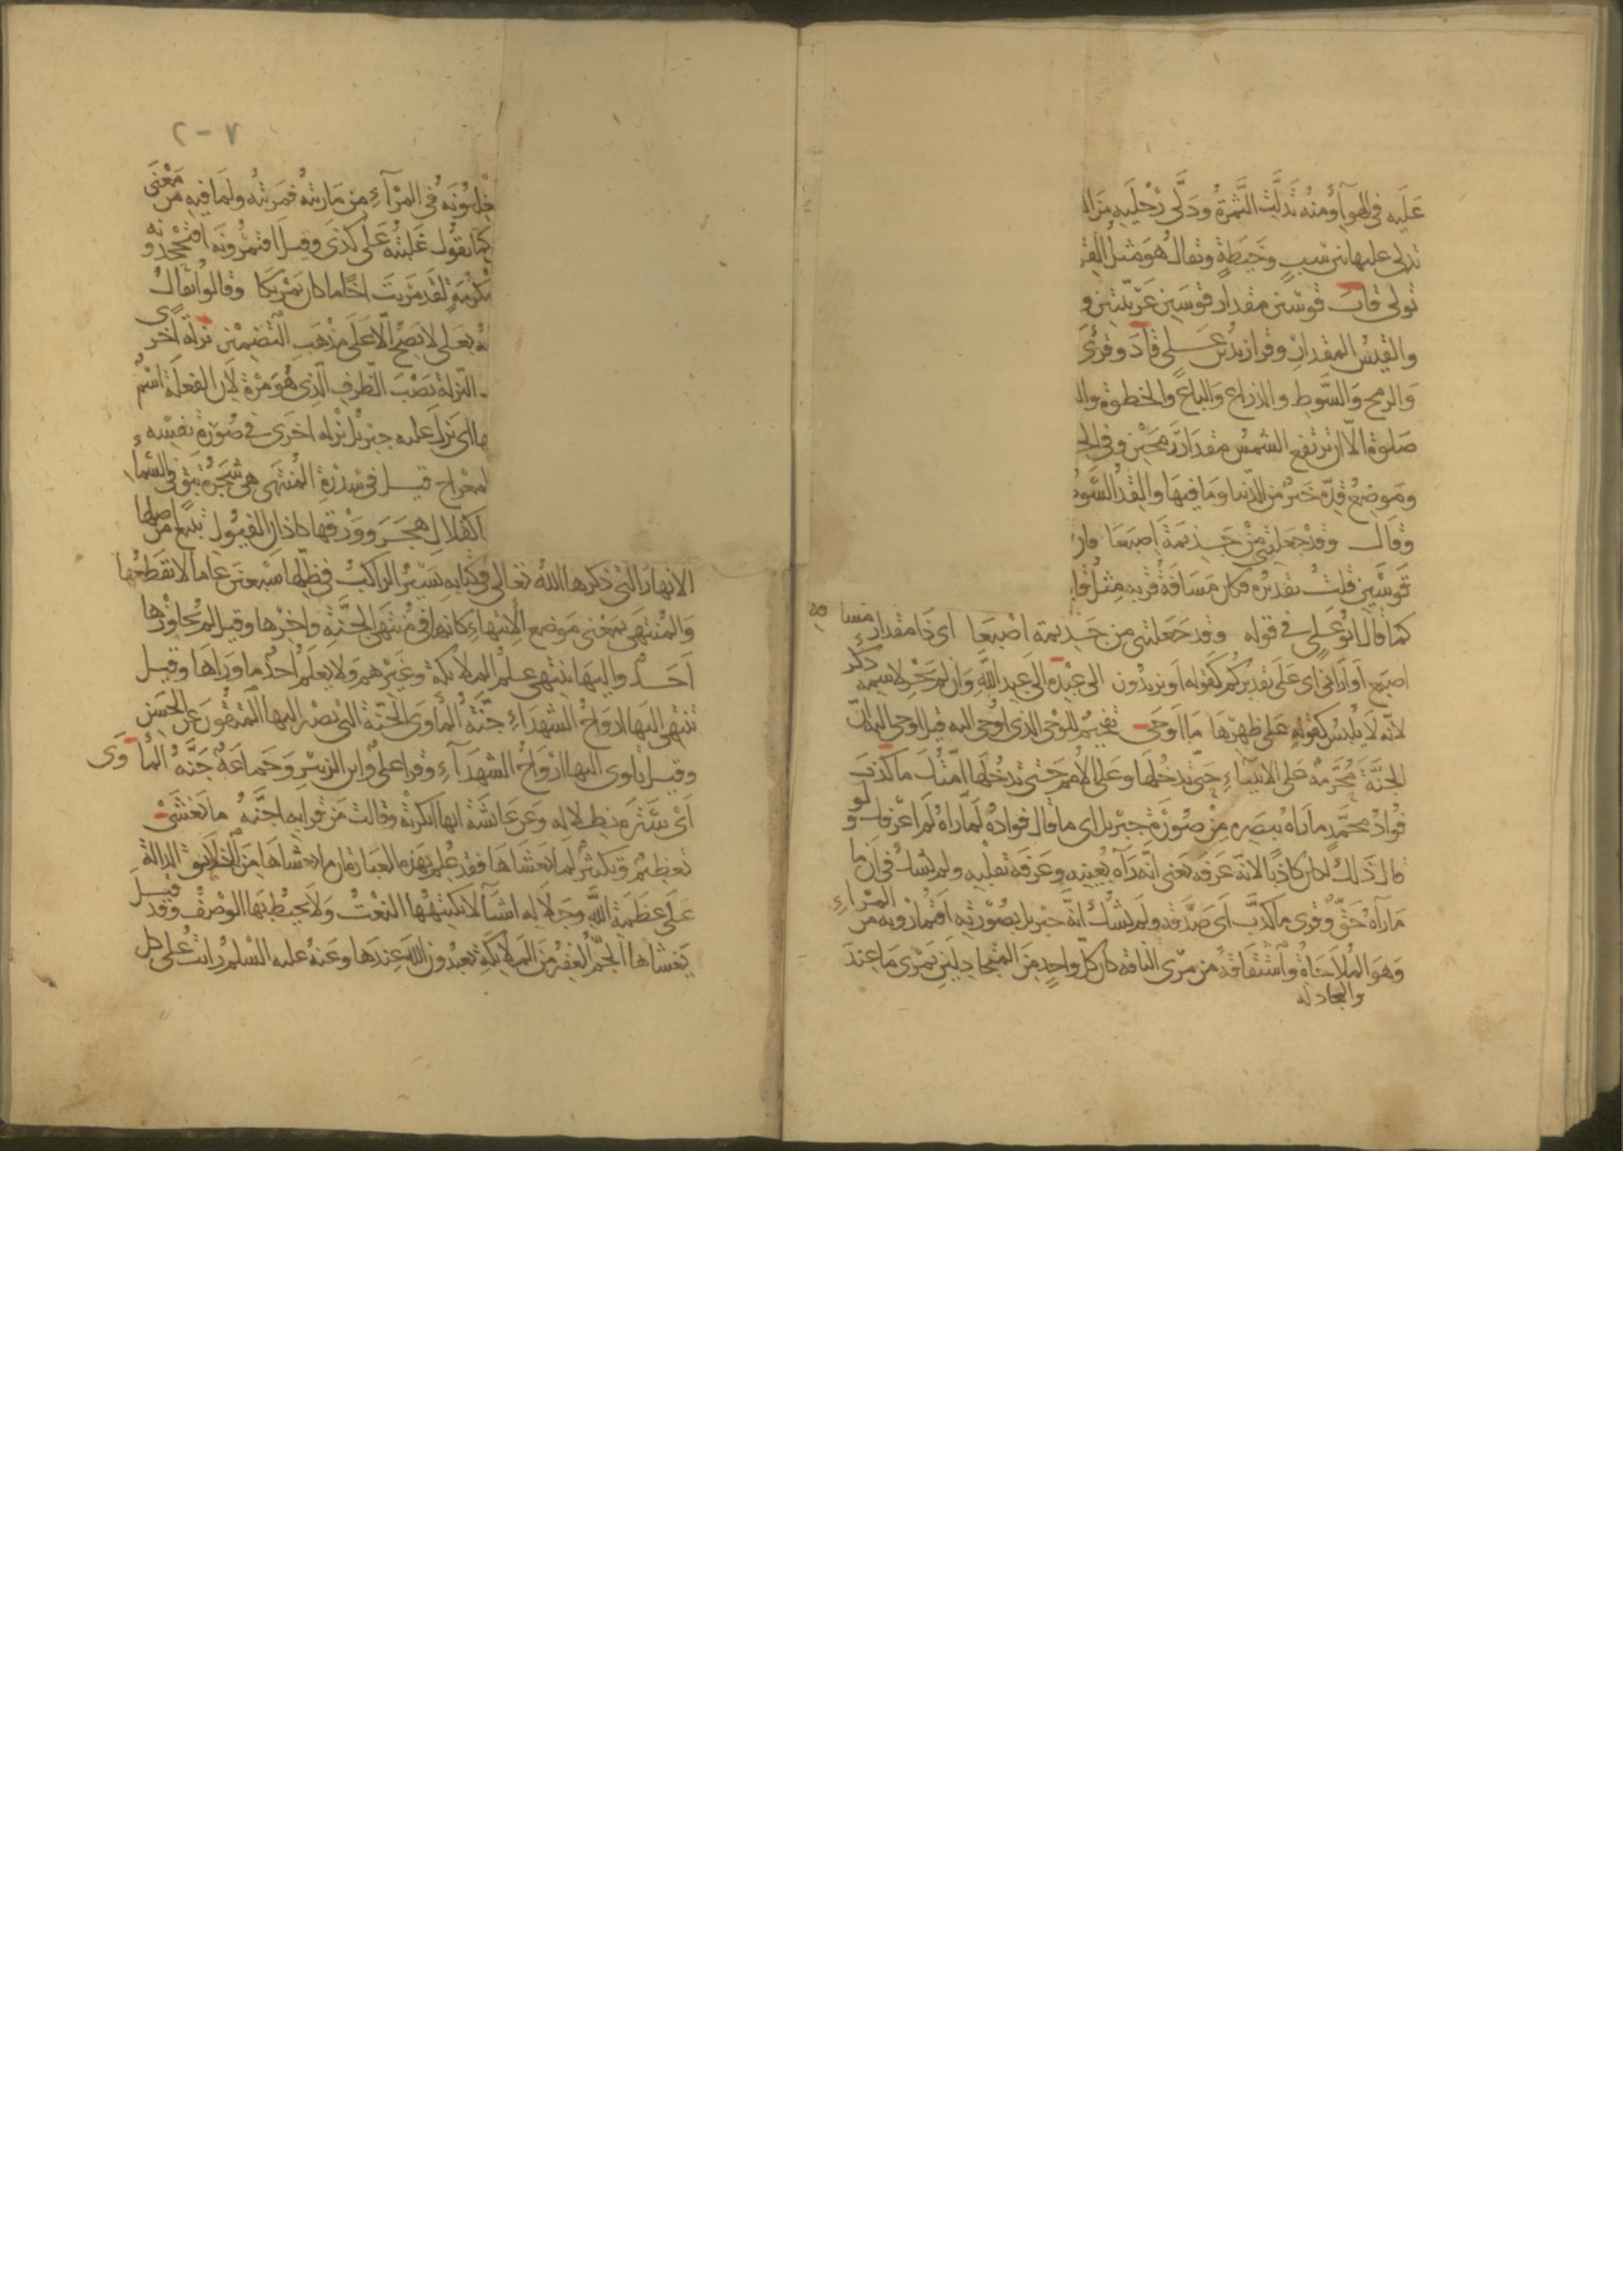 عليه في الهوآء ومنه تدلّت الثّمرة ودلّى رجليه من ال
تدلى عليها بين سب وخيطة ويقال هو مثل القر
تولى قاب قوسين مقدار قوسين عربيّتين و
والقيس المقدار وقرا زيد بن علي قاد وقرئ
والرمح والسّوط والذراع والباع والخطوة وال
صلوة الّا ان ترتفع الشمس مقدار رمحين وفي الح
وموضع قدّه خير من الدّنيا وما فيها والقدّ السّو
وقال وقد جعلتني من حزيمة اصبعا فان
قوسين قلت تقديره فكان مسافة قربه مثل قا
كما قال ابو علي في قوله وقد جعلتني من حزيمة اصبعا اي ذا مقدار مسافة
اصبع او ادنى اي على تقديركم كقوله او يزيدون الى عبده الى عبد الله وان لم يجر لاسمه ذكر
لانّه لا يلبس كقوله على ظهرها ما اوحى تفخيم للوحي الذي اوحي اليه قيل اوحي اليه انّ
الجنّة محرّمة على الانبيآء حتى تدخلها وعلى الامم حتى تدخلها امّتك ما كذب
فؤاد محمّد ما رآه ببصره من صورة جبريل اي ما قال فؤاده لمّا رآه لم اعرفك ولو
قال ذلك لكان كاذبا لانّه عرفه يعني انّه رآه بعينه وعرفه بقلبه ولم يشك في ان ما
مارآه حقّ وقرى ما كذّب اي صدّقه ولم يشك انّه جبريل بصورته افتمارونه من المرآء
وهو الملاحاة واشتقاقه من مري الناقة كان كلّ واحد من المتجادلين يمري ما عند
والمجادلة
٢٠٧
غلبونه في المرآء من ماريته فمريته ولما فيه من معنى
كما تقول غلبته على كذى وقيل افتمرونه افتجحدونه و
مكرمة لقد مريت اخًا ما كان يمريكا وقالوا يقال
ه بعلى لا يصح الّا على مذهب التضمين نزلة اخرى
النّزلة نصب الظرف الّذي هو مرة لان الفعلة اسم
ها اي نزل عليه جبريل نزلة اخرى في صورة نفسه
المعراج قيل في سدرة المنتهى هي شجرة نبق في السّماء
كقلال هجر وورقها كاذان الفيول تنبع من اصلها
الانهار التي ذكرها الله تعالى في كتابه يسير الراكب في ظلّها سبعين عاما لا يقطعها
والمنتهى بمعنى موضع الانتهاء كانها في منتهى الجنّة واخرها وقيل لم يجاوزها
احد واليها ينتهي علم الملائكة وغيرهم ولا يعلم احد ما ورآها وقيل
تنتهي اليها ارواح الشهدآء جنّة المأوى الجنّة التي يصير اليها المتقون عن الحسن
وقيل ياوى اليها ارواح الشهدآء وقرا علي وابن الزبير وجماعة جنّه المأوى
اي ستره بظلاله وعن عايشة انها انكرته وقالت من قرا به اجنّه ما يغشى
تعظيم وتكثير لما يغشاها فقد علم بهذه العبارة ان ما يغشاها من الخلايق الدالة
على عظمة الله وجلاله اشيآ لا يكتنهها النعت ولا يحيط بها الوصف وقد قيل
يغشاها الجمّ الغفير من الملائكة يعبدون الله عندها وعنه عليه السلم رايت على كل